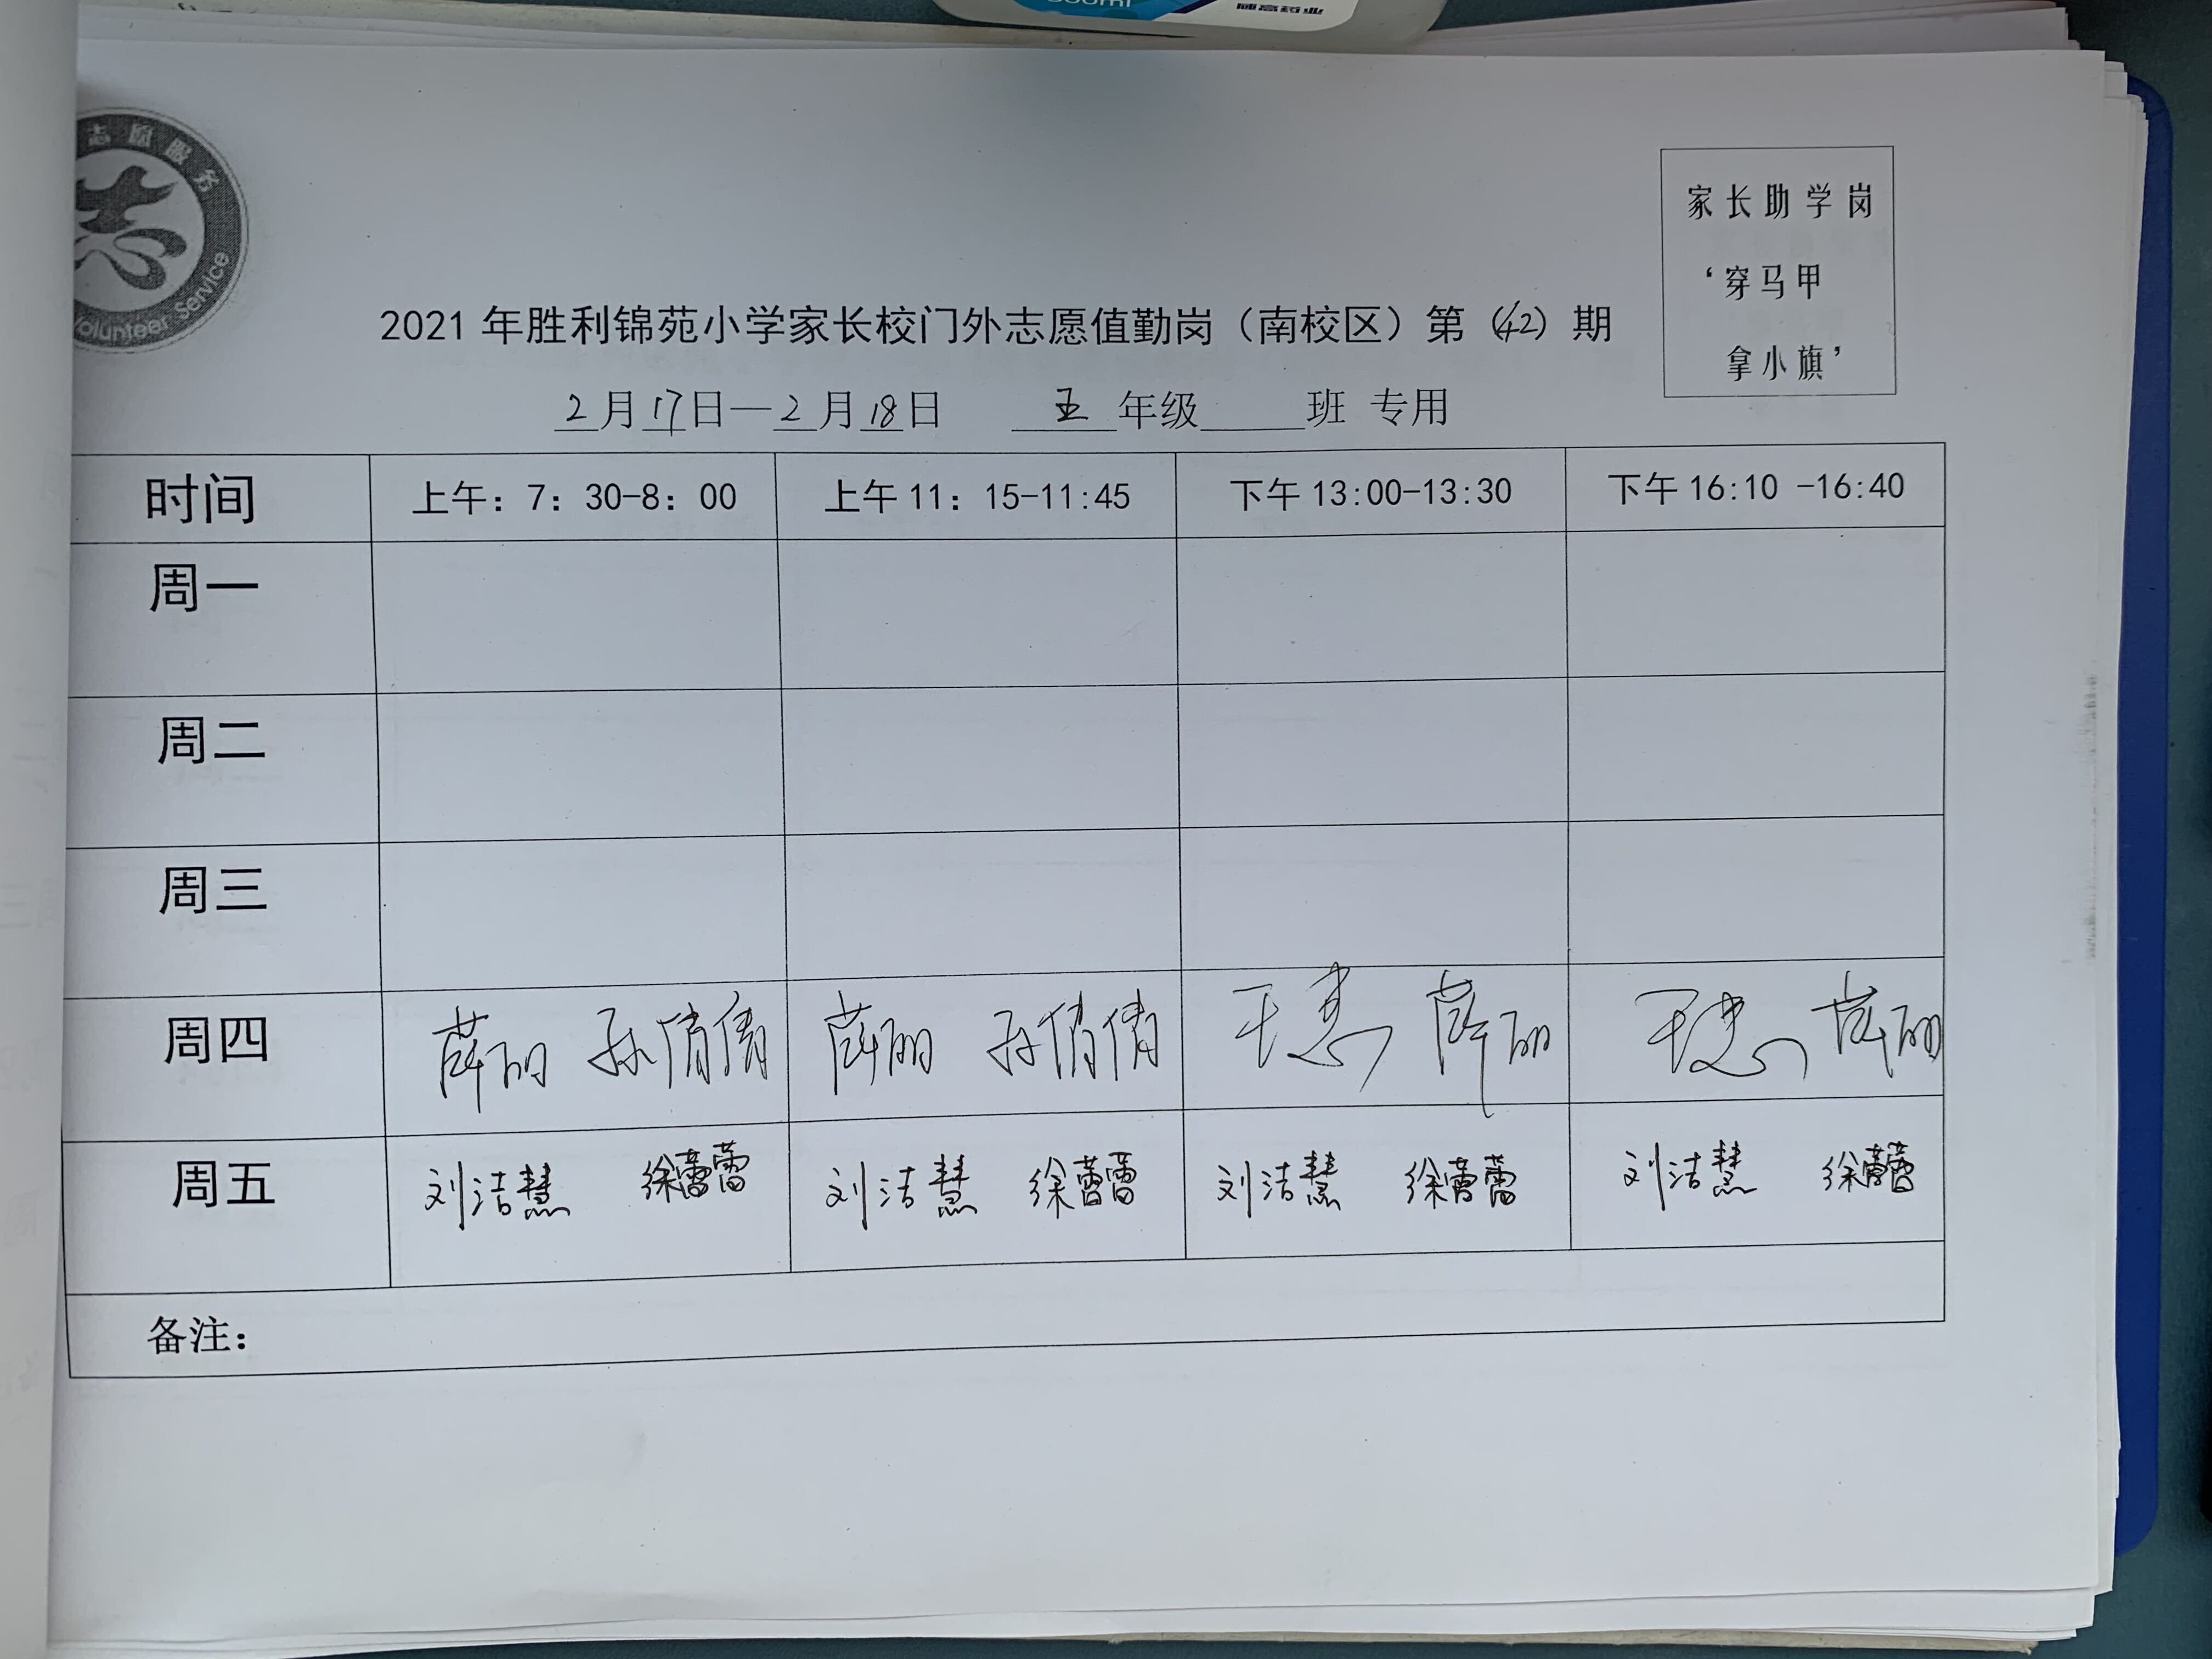 500ml
志愿服务
Volunteer Service
家长助学岗
‘穿马甲
拿小旗’
2021年胜利锦苑小学家长校门外志愿值勤岗（南校区）第（42）期
2月17日—2月18日 五年级____班 专用
时间 上午：7：30-8：00 上午11：15-11:45 下午13:00-13:30 下午16:10 -16:40
周一
周二
周三
周四 薛丽 孙倩倩 薛丽 孙倩倩 王惠 薛丽 王惠 薛丽
周五 刘洁慧 徐蕾蕾 刘洁慧 徐蕾蕾 刘洁慧 徐蕾蕾 刘洁慧 徐蕾蕾
备注：